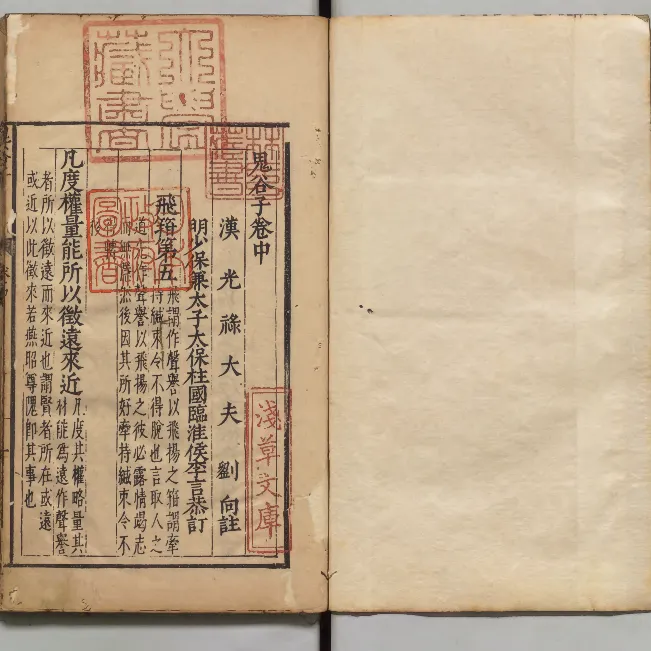 鬼谷子卷中
漢光祿大夫劉向註
明少保兼太子太保柱國臨淮侯李言恭訂
飛箝第五
飛謂作聲譽以飛揚之箝謂牽
持緘束令不得脫也言取人之
道先作聲譽以飛揚之彼必露情竭志
而無隱然後因其所好牽持緘束令不
凡度權量能所以徵遠來近
凡度其權略量其
材能爲遠作聲譽
者所以徵遠而來近也謂賢者所在或遠
或近以此徵來若燕昭尊隗即其事也
林氏藏書
日本政府圖書
淺草文庫